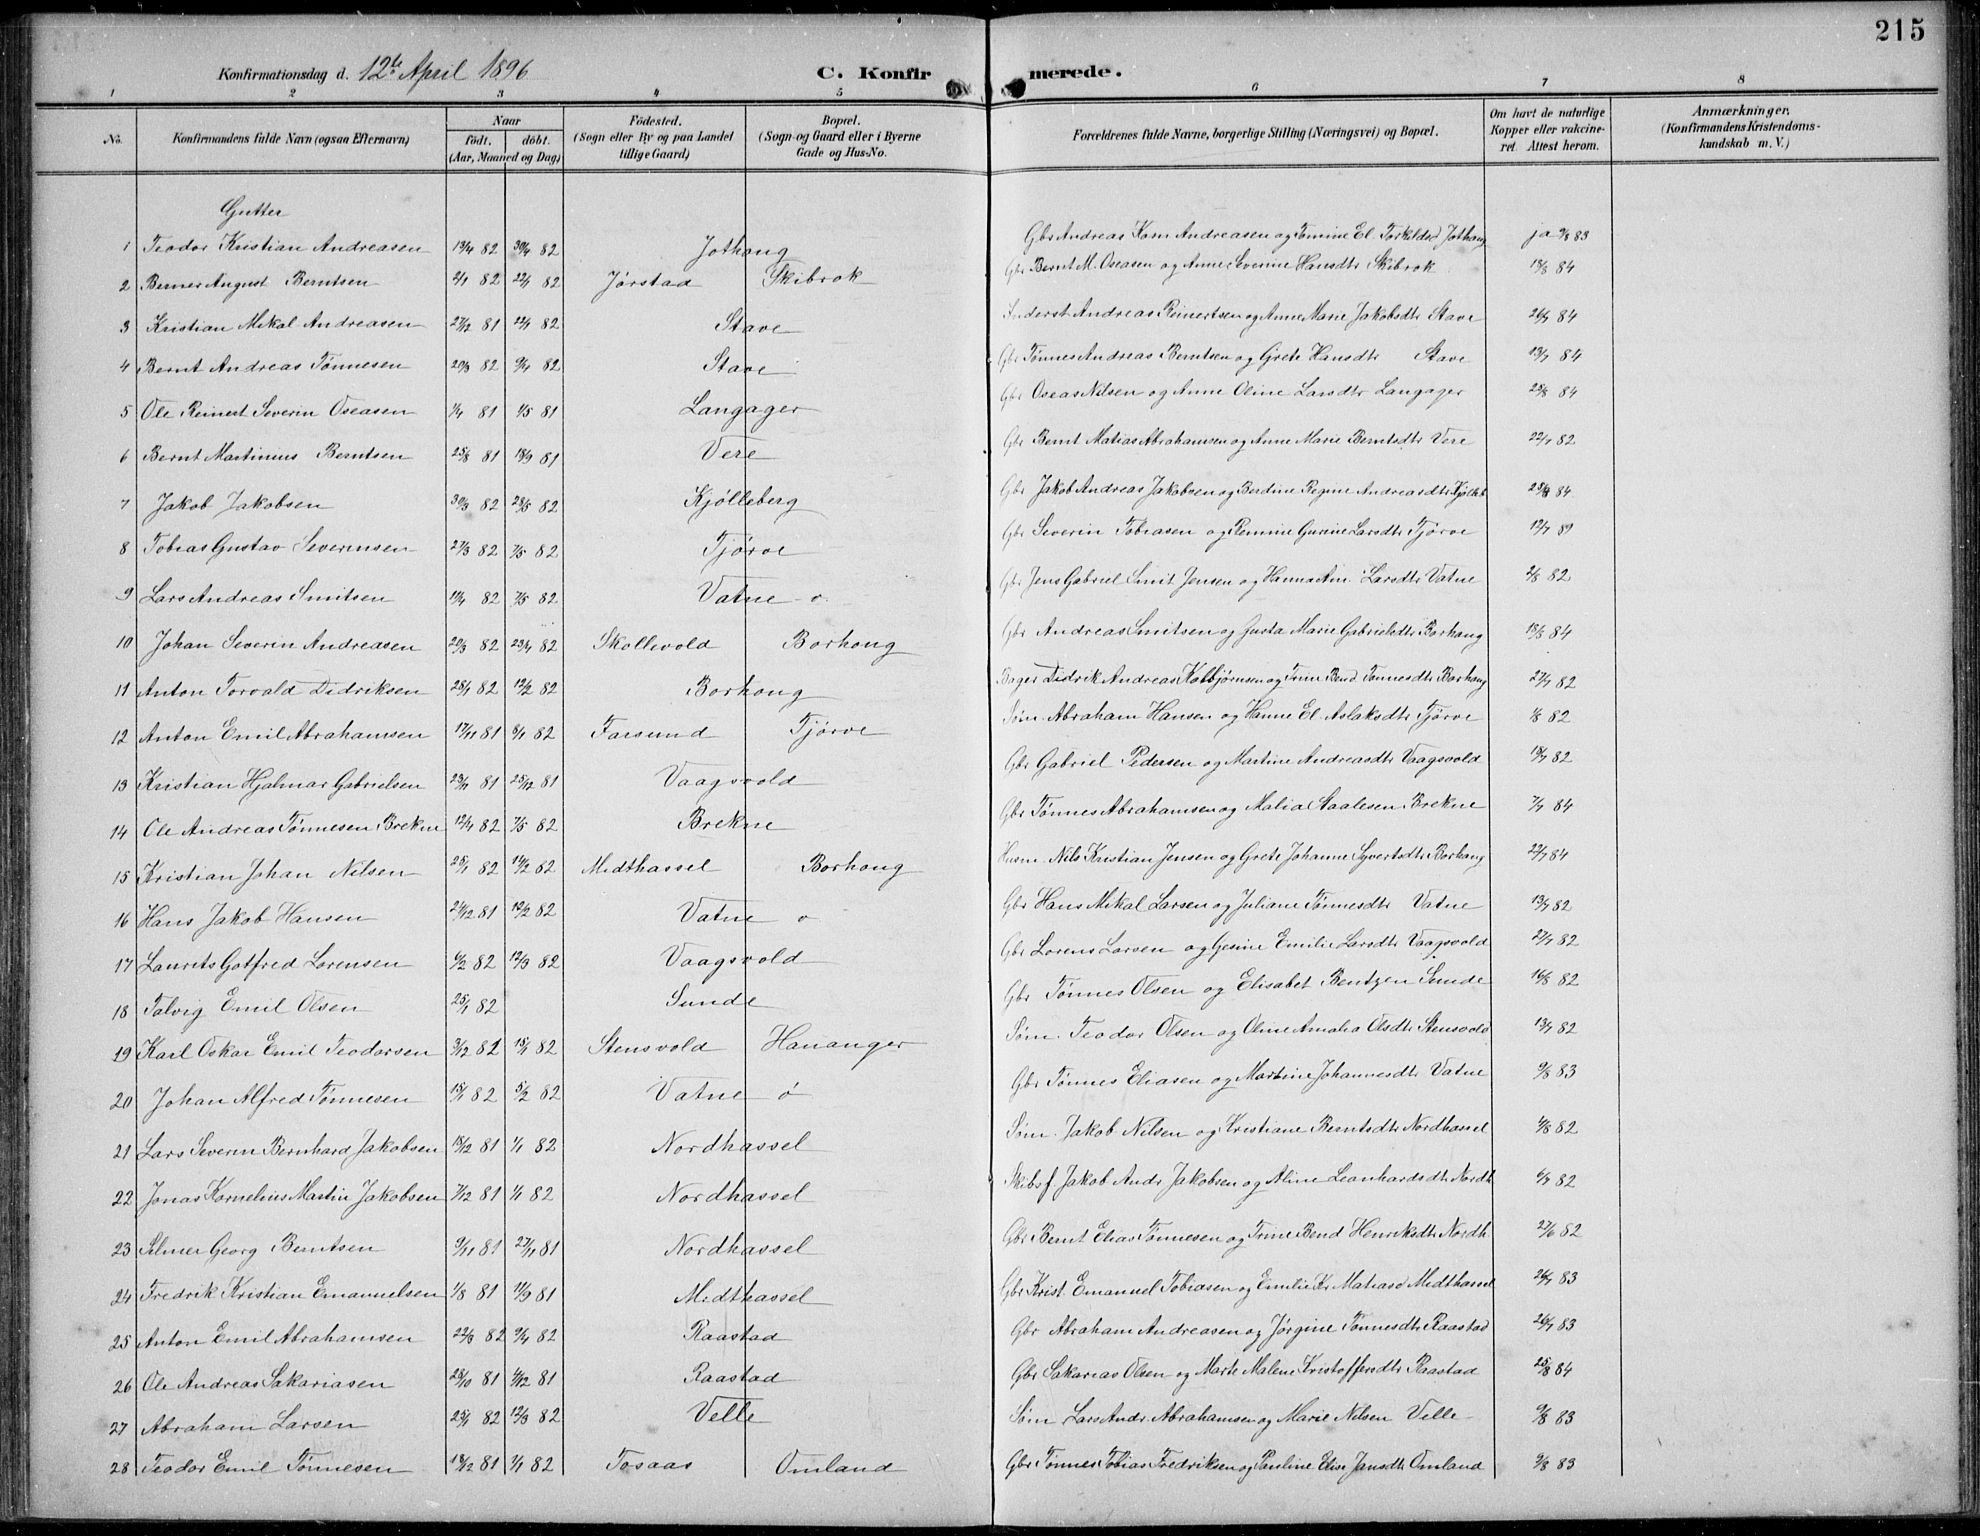 215
Konfirmationsdag d. 12te April 1896 C. Konfirmerede.
1 2 3 4 5 6 7 8
No. Konfirmandens fulde Navn (ogsaa Efternavn) Naar født. døbt. (Aar, Maaned og Dag) Fødested. (Sogn eller By og paa Landet tillige Gaard) Bopæl. (Sogn og Gaard eller i Byerne Gade og Hus-No. Forældrenes fulde Navne, borgerlige Stilling (Næringsvei) og Bopæl. Om havt de naturlige Kopper eller vakcineret. Attest herom. Anmærkninger. (Konfirmandens Kristendomskundskab m. V.)
Gutter
1 Teodor Kristian Andreasen 13/4 82 30/4 82 Jothang Gbr Andreas Korn Andreasen og Tomine El. Torkildsd Jothang ja 9/8 83
2 Berner August Berntsen 2/1 82 22/1 82 Jørstad Skibrok Gbr Bernt M. Oseasen og Anne Severine Hansdtr Skibrok 18/8 84
3 Kristian Mikal Andreasen 27/12 81 22/1 82 Stave Andreas Reinertsen og Anne Marie Jakobsdtr Stave 26/7 84
4 Bernt Andreas Tønnesen 20/3 82 9/4 82 Stave Gbr Tønnes Andreas Berntsen og Grete Hansdtr Stave 13/7 84
5 Ole Reinert Severin Oseasen 1/4 81 1/5 81 Langager Gbr Oseas Nilsen og Anne Oline Larsdtr Langager 25/8 84
6 Bernt Martinius Berntsen 25/8 81 18/9 81 Vere Gbr Bernt Matias Abrahamsen og Anne Marie Berntsdtr Vere 22/7 82
7 Jakob Jakobsen 30/3 82 28/5 82 Kjølleberg Gbr Jakob Andreas Jakobsen og Berdine Regine Andreasdtr Kjølleb 25/8 84
8 Tobias Gustav Severinsen 27/3 82 7/5 82 Tjørve Gbr Severin Tobiasen og Remine Gurine Larsdtr Tjørve 12/7 89
9 Lars Andreas Smitsen 17/4 82 7/5 82 Vatne ø Gbr Jens Gabriel Smit Jensen og Hanna Ane Larsdtr Vatne 2/8 82
10 Johan Severin Andreasen 20/3 82 23/4 82 Skollevold Borhong Gbr Andreas Smitsen og Gusta Marie Gabrielsdtr Borhang 18/8 84
11 Anton Torvald Didriksen 28/1 82 12/2 82 Borhong Bager Didrik Andreas Kolbjørnsen og Trine Bend Tønnesdtr Borhong 27/7 82
12 Anton Emil Abrahamsen 17/11 81 8/1 82 Farsund Tjørve Søm. Abraham Hansen og Hanne El. Aslaksdtr Tjørve 1/8 82
13 Kristian Hjalmar Gabrielsen 23/11 81 25/12 81 Vaagsvold Gbr Gabriel Pedersen og Martine Andreasdtr Vaagsvold 18/7 82
14 Ole Andreas Tønnesen Brekne 12/4 82 7/5 82 Brekne Gbr Tønnes Abrahamsen og Malia Staalesen Brekne 7/7 84
15 Kristian Johan Nilsen 25/1 82 14/2 82 Midthassel Borhong Husm. Nils Kristian Jensen og Grete Johanne Syvertsdtr Borhong 22/7 84
16 Hans Jakob Hansen 24/12 81 12/2 82 Vatne ø Gbr Hans Mikal Larsen og Juliane Tønnesdtr Vatne 13/7 82
17 Laurits Gotfred Lorensen 6/2 82 12/3 82 Vaagsvold Gbr Lorens Larsen og Gesine Emilie Larsdtr Vaagsvold 27/7 82
18 Talvig Emil Olsen 25/1 82 Sunde Gbr Tønnes Olsen og Elisabet Bentzen Sunde 16/8 82
19 Karl Oskar Emil Teodorsen 3/12 81 15/1 82 Stensvold Hananger Søm. Teodor Olsen og Oline Amalia Olsdtr Stensvold 13/7 82
20 Johan Alfred Tønnesen 15/1 82 5/2 82 Vatne ø Gbr Tønnes Eliasen og Martine Johannesdtr Vatne 9/8 83
21 Lars Severin Bernhard Jakobsen 18/12 81 1/1 82 Nordhassel Søm. Jakob Nilsen og Kristiane Berntsdtr Nordhassel 4/8 82
22 Jonas Kornelius Martin Jakobsen 7/12 81 1/1 82 Nordhassel Skibsf Jakob Andr Jakobsen og Aline Leonhardsdtr Nordh 6/7 82
23 Selmer Georg Berntsen 9/11 81 27/11 81 Nordhassel Gbr Bernt Elias Tønnesen og Trine Bend Henriksdtr Nordh 27/6 82
24 Fredrik Kristian Emanuelsen 1/8 81 11/9 81 Midthassel Gbr Krist. Emanuel Tobiasen og Emilie Kr Matiasd Midthassel 26/7 83
25 Anton Emil Abrahamsen 22/3 82 9/4 82 Raastad Gbr Abraham Andreasen og Jørgine Tønnesdtr Raastad 26/7 83
26 Ole Andreas Sakariasen 28/10 81 4/12 81 Raastad Gbr Sakarias Olsen og Marte Malene Kristoffersdtr Raastad 25/8 84
27 Abraham Larsen 25/1 82 12/3 82 Velle Søm Lars Andr. Abrahamsen og Marie Nilsen Velle 9/8 83
28 Teodor Emil Tønnesen 18/12 81 1/1 82 Tosaas Omland Gbr Tønnes Tobias Fredriksen og Pauline Elise Jansdtr Omland 9/8 83